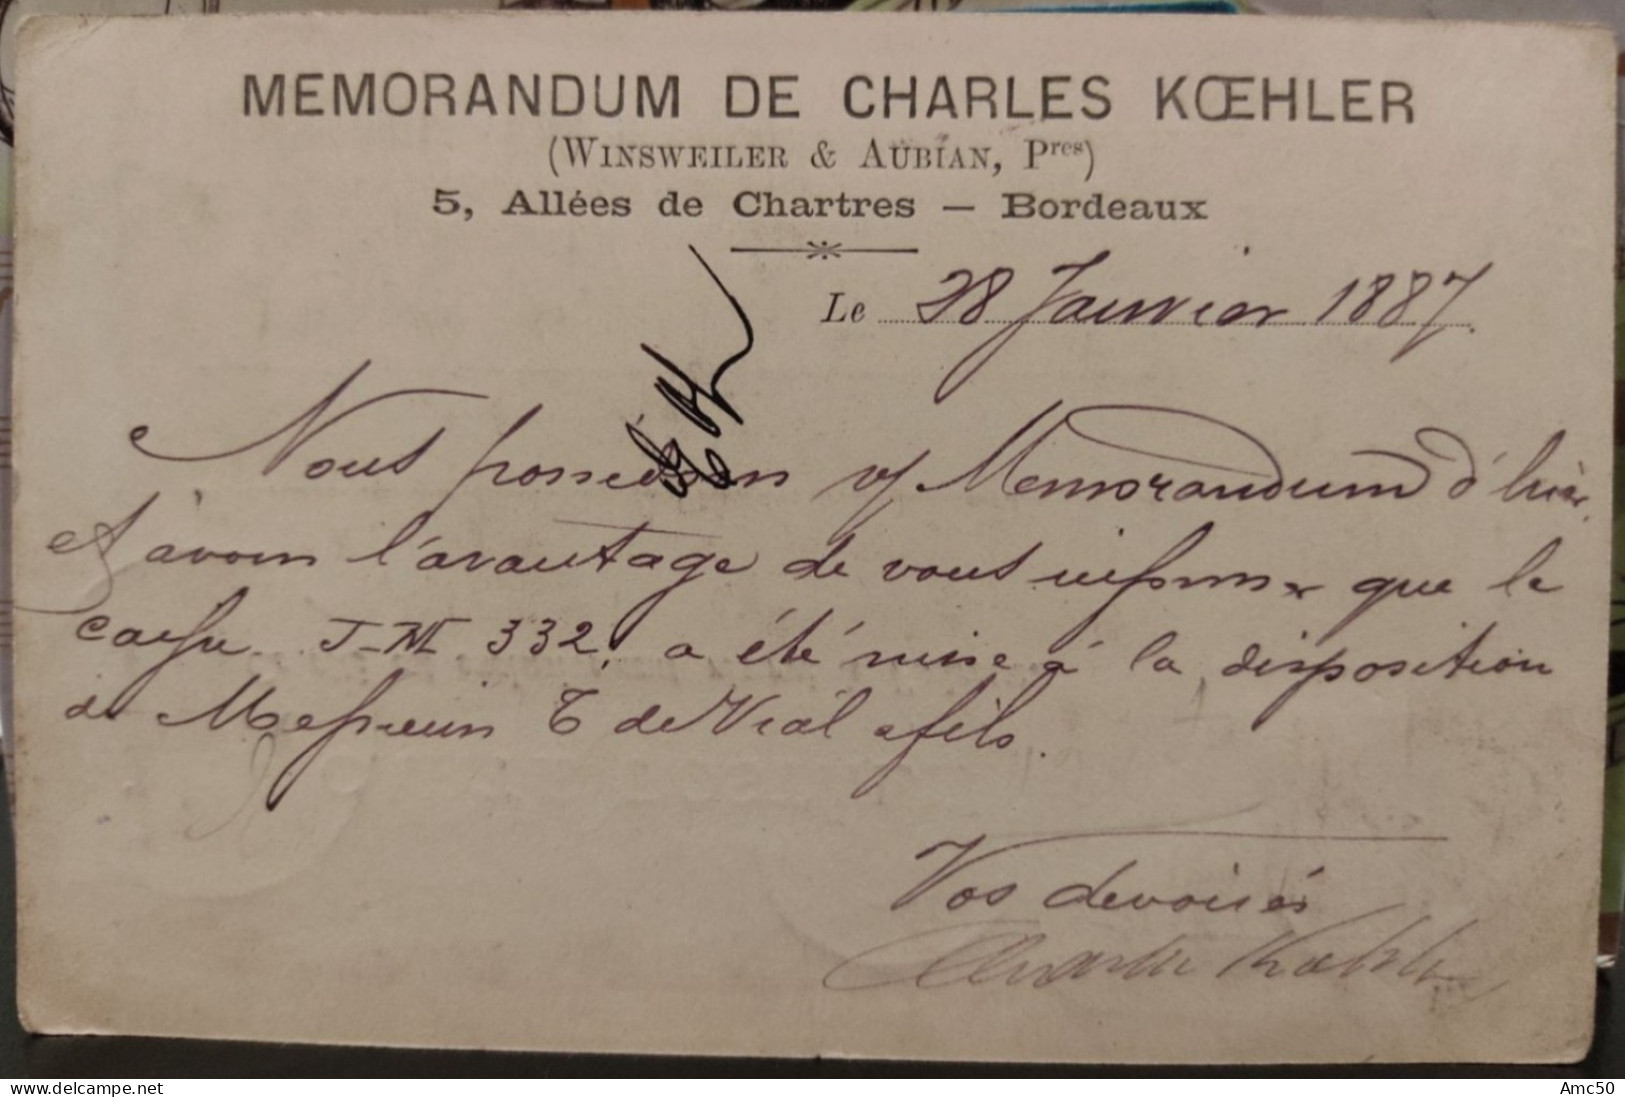 MEMORANDUM DE CHARLES KŒHLER
(WINSWEILER & AUBIAN, Pres)
5, Allées de Chartres — Bordeaux
Le 28 Janvier 1887.
Nous possédons v/ Memorandum d'hier
& avons l'avantage de vous informer que le
caisse J-M 332, a été mise à la disposition
de Messieurs de Vial & fils.
Vos dévoués
Charles Koehler
Amc50